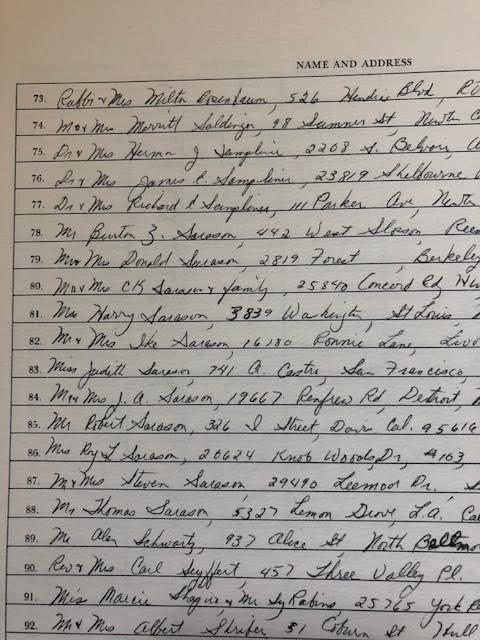 NAME AND ADDRESS
73. Rabbi & Mrs Milton Rosenbaum, 526 Hendrie Blvd, R
74. Mr & Mrs Merritt 98 Sumner St Newton C
75. Dr & Mrs Herman J Sampliner, 2208 S. Belvoir,
76. Dr & Mrs James E. Sampliner, 23819 Shelbourne
77. Dr & Mrs Richard E Sampliner, 111 Parker Av, Newton
78. Mr Burton Z. Sarason, 442 West
79. Mr & Mrs Donald Sarason, 2819 Forest, Berkeley
80. Mr & Mrs CK Sarason & family, 25840 Concord Rd, Hu
81. Harry Sarason, 3839 Washington, St Louis,
82. Mr & Mrs Ike Sarason, 16180 Ronnie Lane, Livo
83. Miss Judith Sarason 741 A. Castro, San Francisco,
84. Mr & Mrs J. A. Sarason, 19667 Renfrew Rd, Detroit,
85. Mr Robert Sarason, 326 I Street, Davis Cal. 95616
86. Mrs Roy L Sarason, 20624 Knob Woods Dr, #103,
87. Mr & Mrs Steven Sarason 29490 Leemoor Dr.
88. Mr Thomas Sarason, 5327 Lemon Grove, L.A. Ca
89. Mr Alan Schwartz, 937 Alice St North
90. Rev & Mrs Carl Seyffert, 457 Three Valley Pl.
91. Miss Marcie Shapiro & Mr Sy Rabins, 25765 York R
92. Mr & Mrs Albert Shrifer 31 Coburn St, Hull